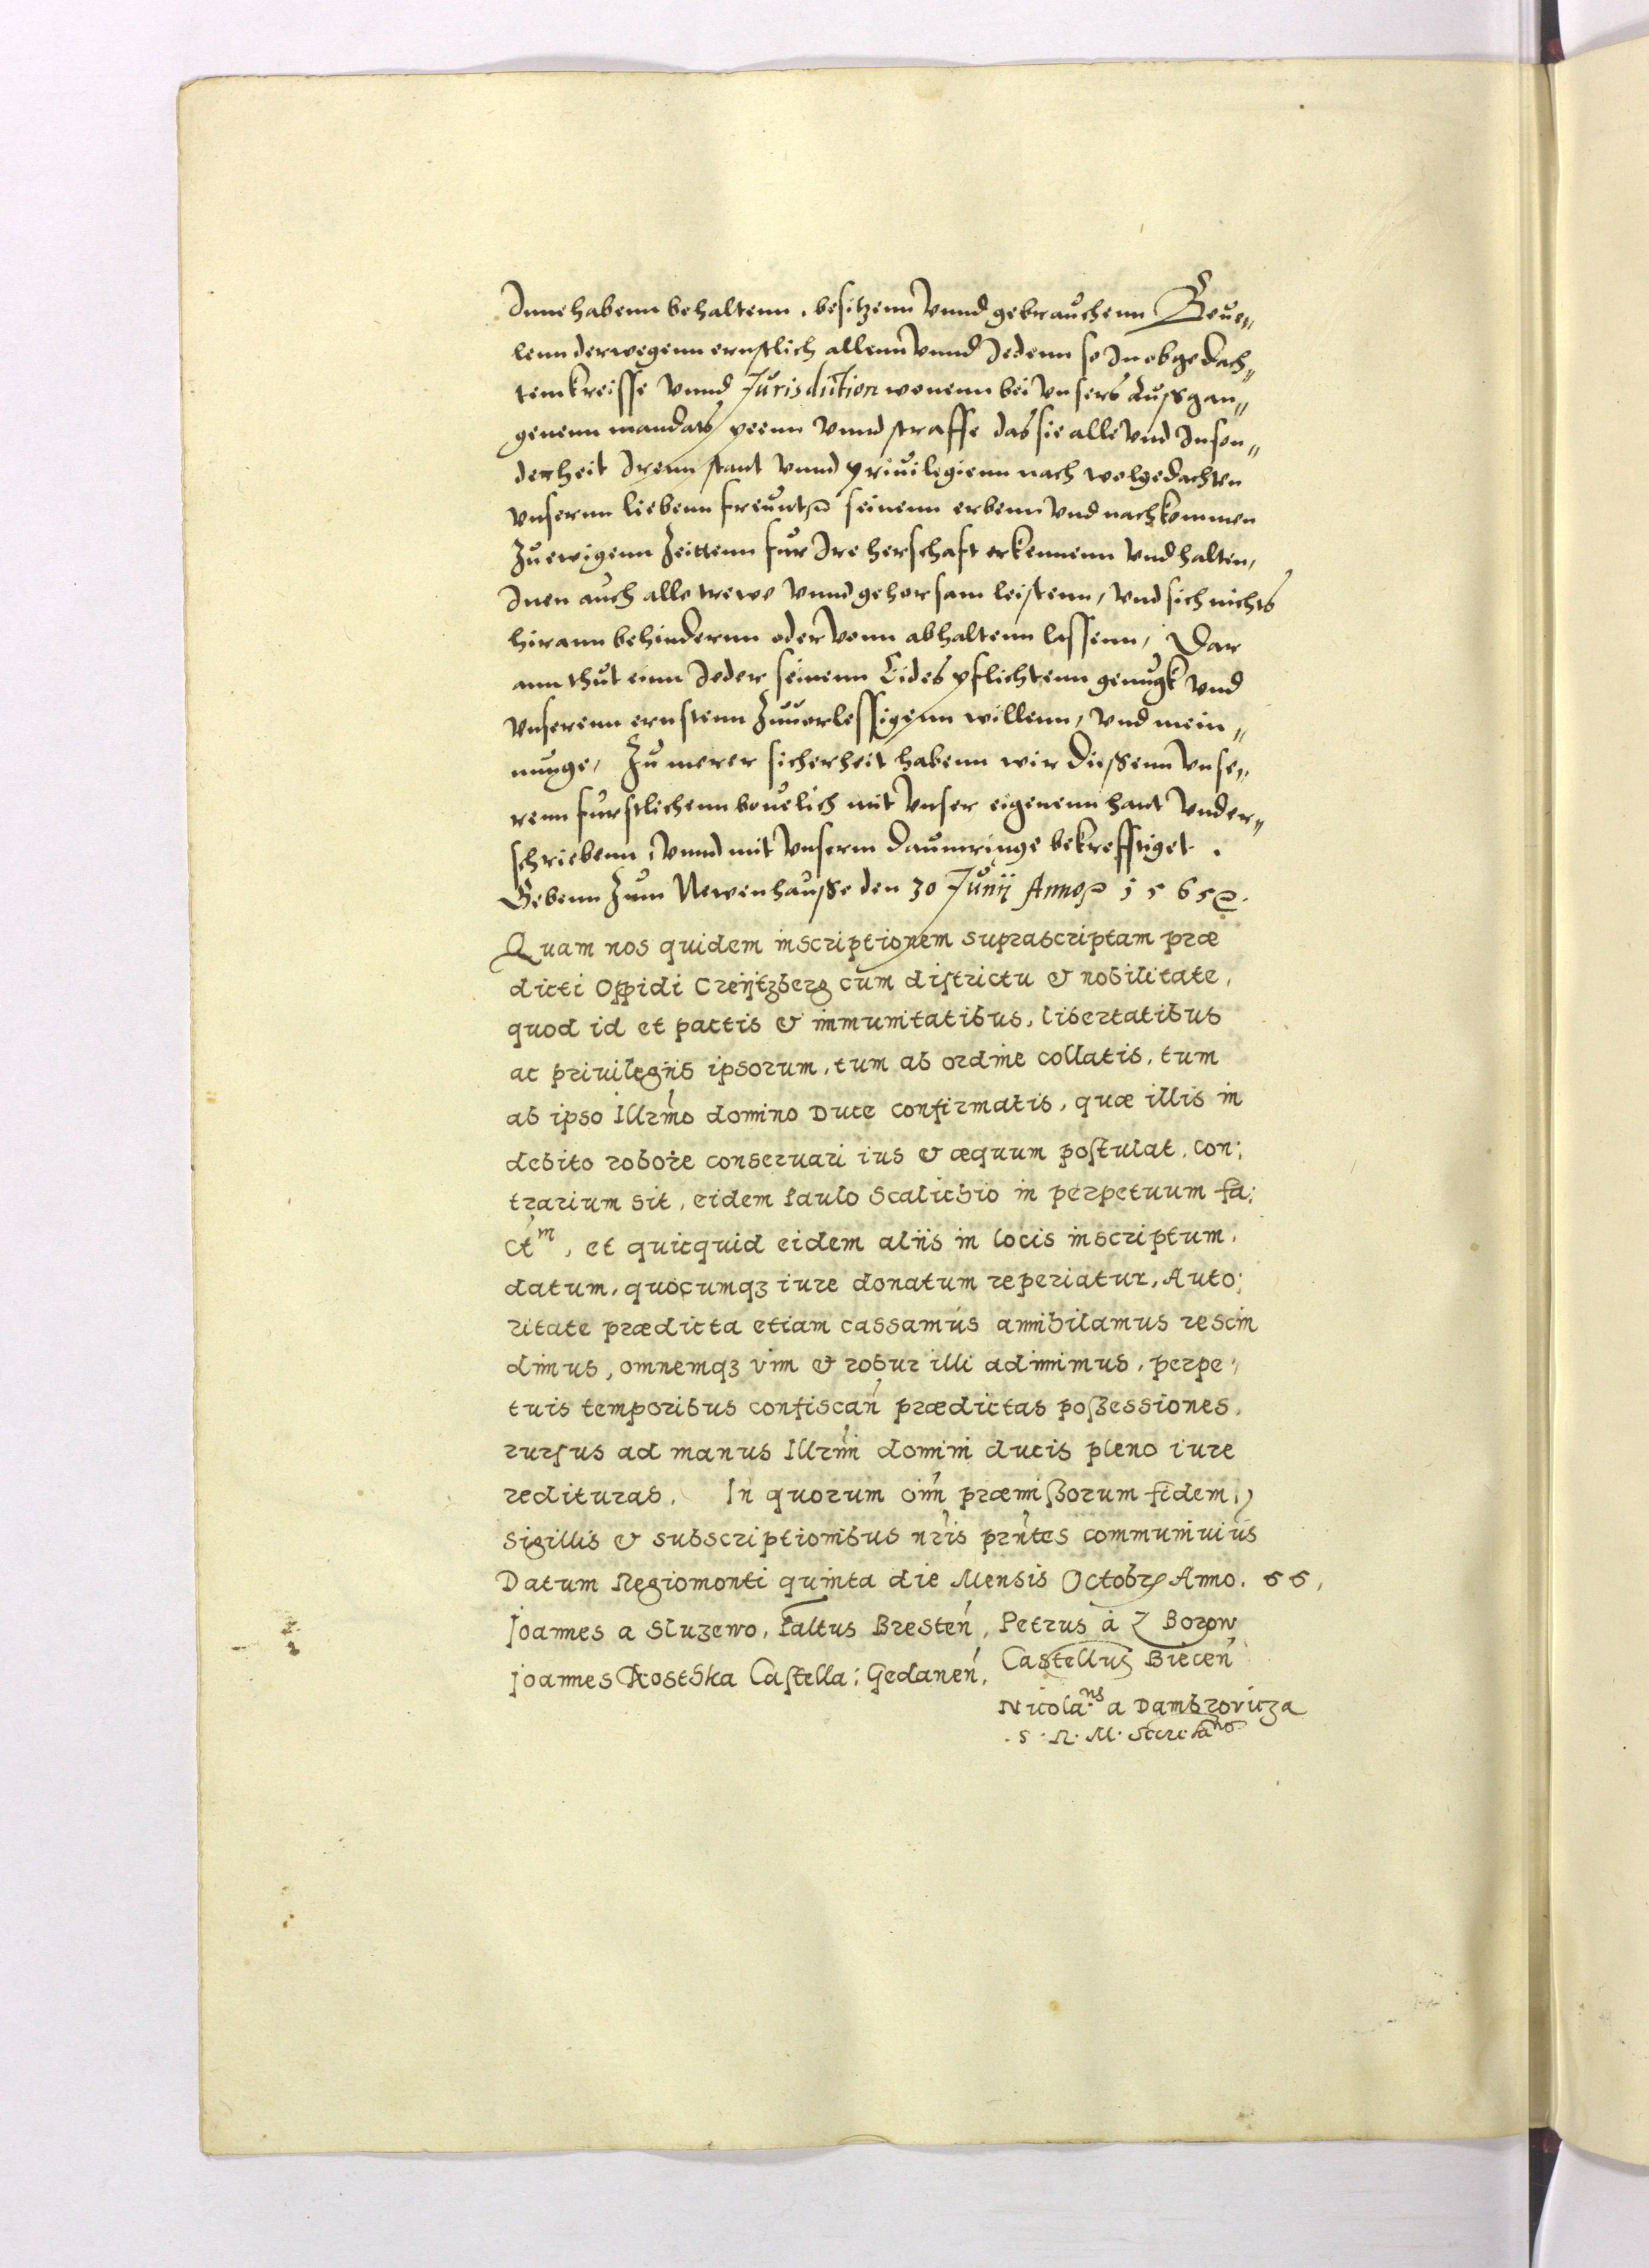 Innehabenn behaltenn, besitzenn vnnd gebrauchenn Beue„
lenn derwegenn ernstlich allenn vnnd Jedenn so In obgedach„
tem kreisse vnnd Jurisdiction wonenn bei vnsers außgan„
genenn mandats peenn vnnd straffe das sie alle vnd Inson„
derheit Irenn stant vnnd priuilegienn nach wolgedachten
vnsernn liebenn freundt seinenn erbenn vnd nachkommen
Zu ewigenn Zeittenn fur Ire herschaft erkennenn vnd halten,
Inen auch alle trewe vnnd gehorsam leistenn, vnd sich nichts
hirann behindernn oder vonn abhaltenn lassenn, Dar
ann thut einn Jeder seinenn Eides pflichtenn genugk vnd
vnserenn ernstenn Zuuerlessigenn willenn, vnd mein„
nunge, Zu merer sicherheit habenn wir dießenn vnse„
renn furstlichenn beuelich mit vnser eigenenn hant vnder„
schriebenn, vnnd mit vnserm daumringe bekrefftiget.
Gebenn Zum Newenhauße den 30 Junij Anno 1565.
Quam nos quidem inscriptionem suprascriptam præ
dicti Oppidi Creijtzberg cum districtu & nobilitate,
quod id et pactis & immunitatibus, libertatibus
ac priuilegijs ipsorum, tum ab ordine collatis, tum
ab ipso Illrmo domino Duce confirmatis, quæ illis in
debito robore conseruari ius & æquum postulat, con:
trarium sit, eidem Paulo Scalichio in perpetuum fa:
ctm, et quicquid eidem alijs in locis inscriptum,
datum, quocumqz iure donatum reperiatur, Auto:
ritate prædicta etiam cassamus annihilamus rescin
dimus, omnemqz vim & robur illi adimimus, perpe:
tuis temporibus confiscan prædictas poßessiones,
rursus ad manus Illrmi domini ducis pleno iure
redituras. In quorum oim præmißorum fidem,
sigillis & subscriptionibus nris prntes communiuius
Datum Regiomonti quinta die Mensis Octobr Anno. 66,
Joannes a Sluzewo, Paltus Bresten, Petrus à Z Borow
Castellus Biecen
Joannes Kosthka Castella: Gedanen,
Nicola:us a Dambrovicza
S. R. M. Secretarius